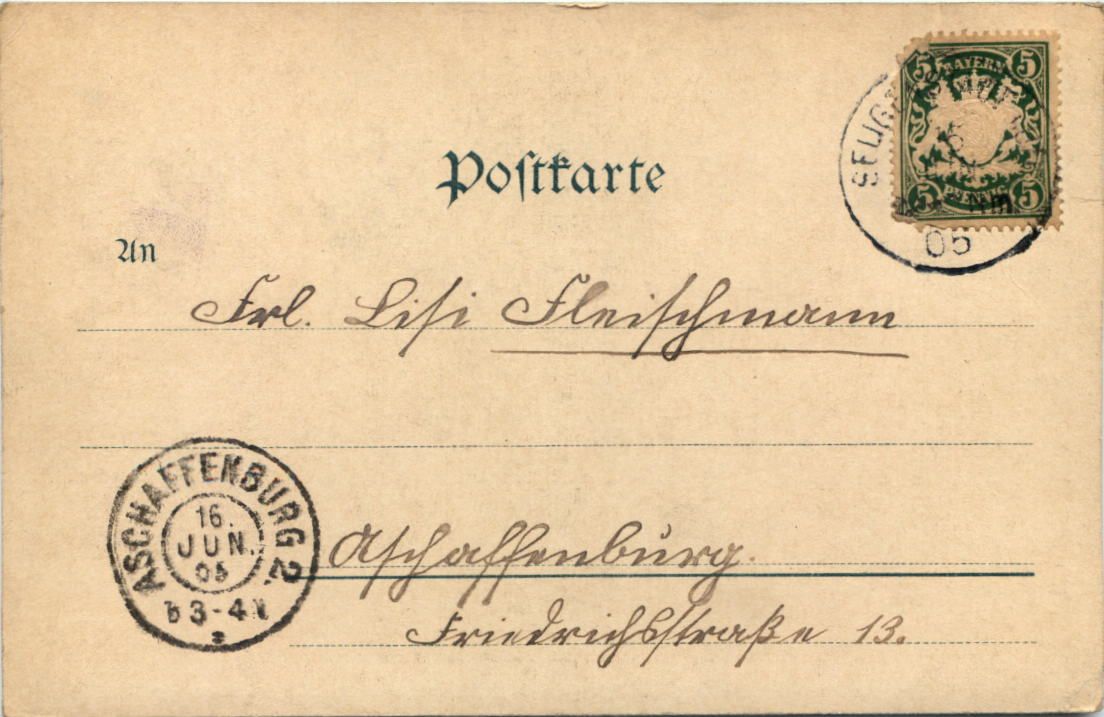 5 BAYERN 5
5 PFENNIG 5
05
Postkarte
An
Frl. Lisi Fleischmann
ASCHAFFENBURG 2
16.
JUN.
05
3-4
Aschaffenburg.
Friedrichsstraße 13.